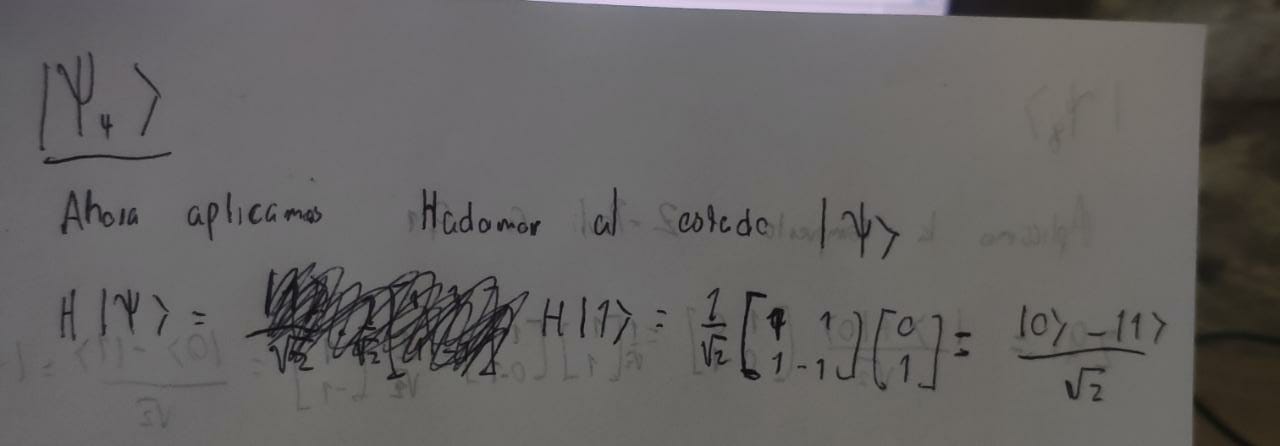 |Ψ₄⟩
Ahora aplicamos Hadamar al estado |Ψ⟩
H|Ψ⟩ = H|1⟩ = 1/√2 [1 1; 1 -1] [0; 1] = (|0⟩ - |1⟩)/√2